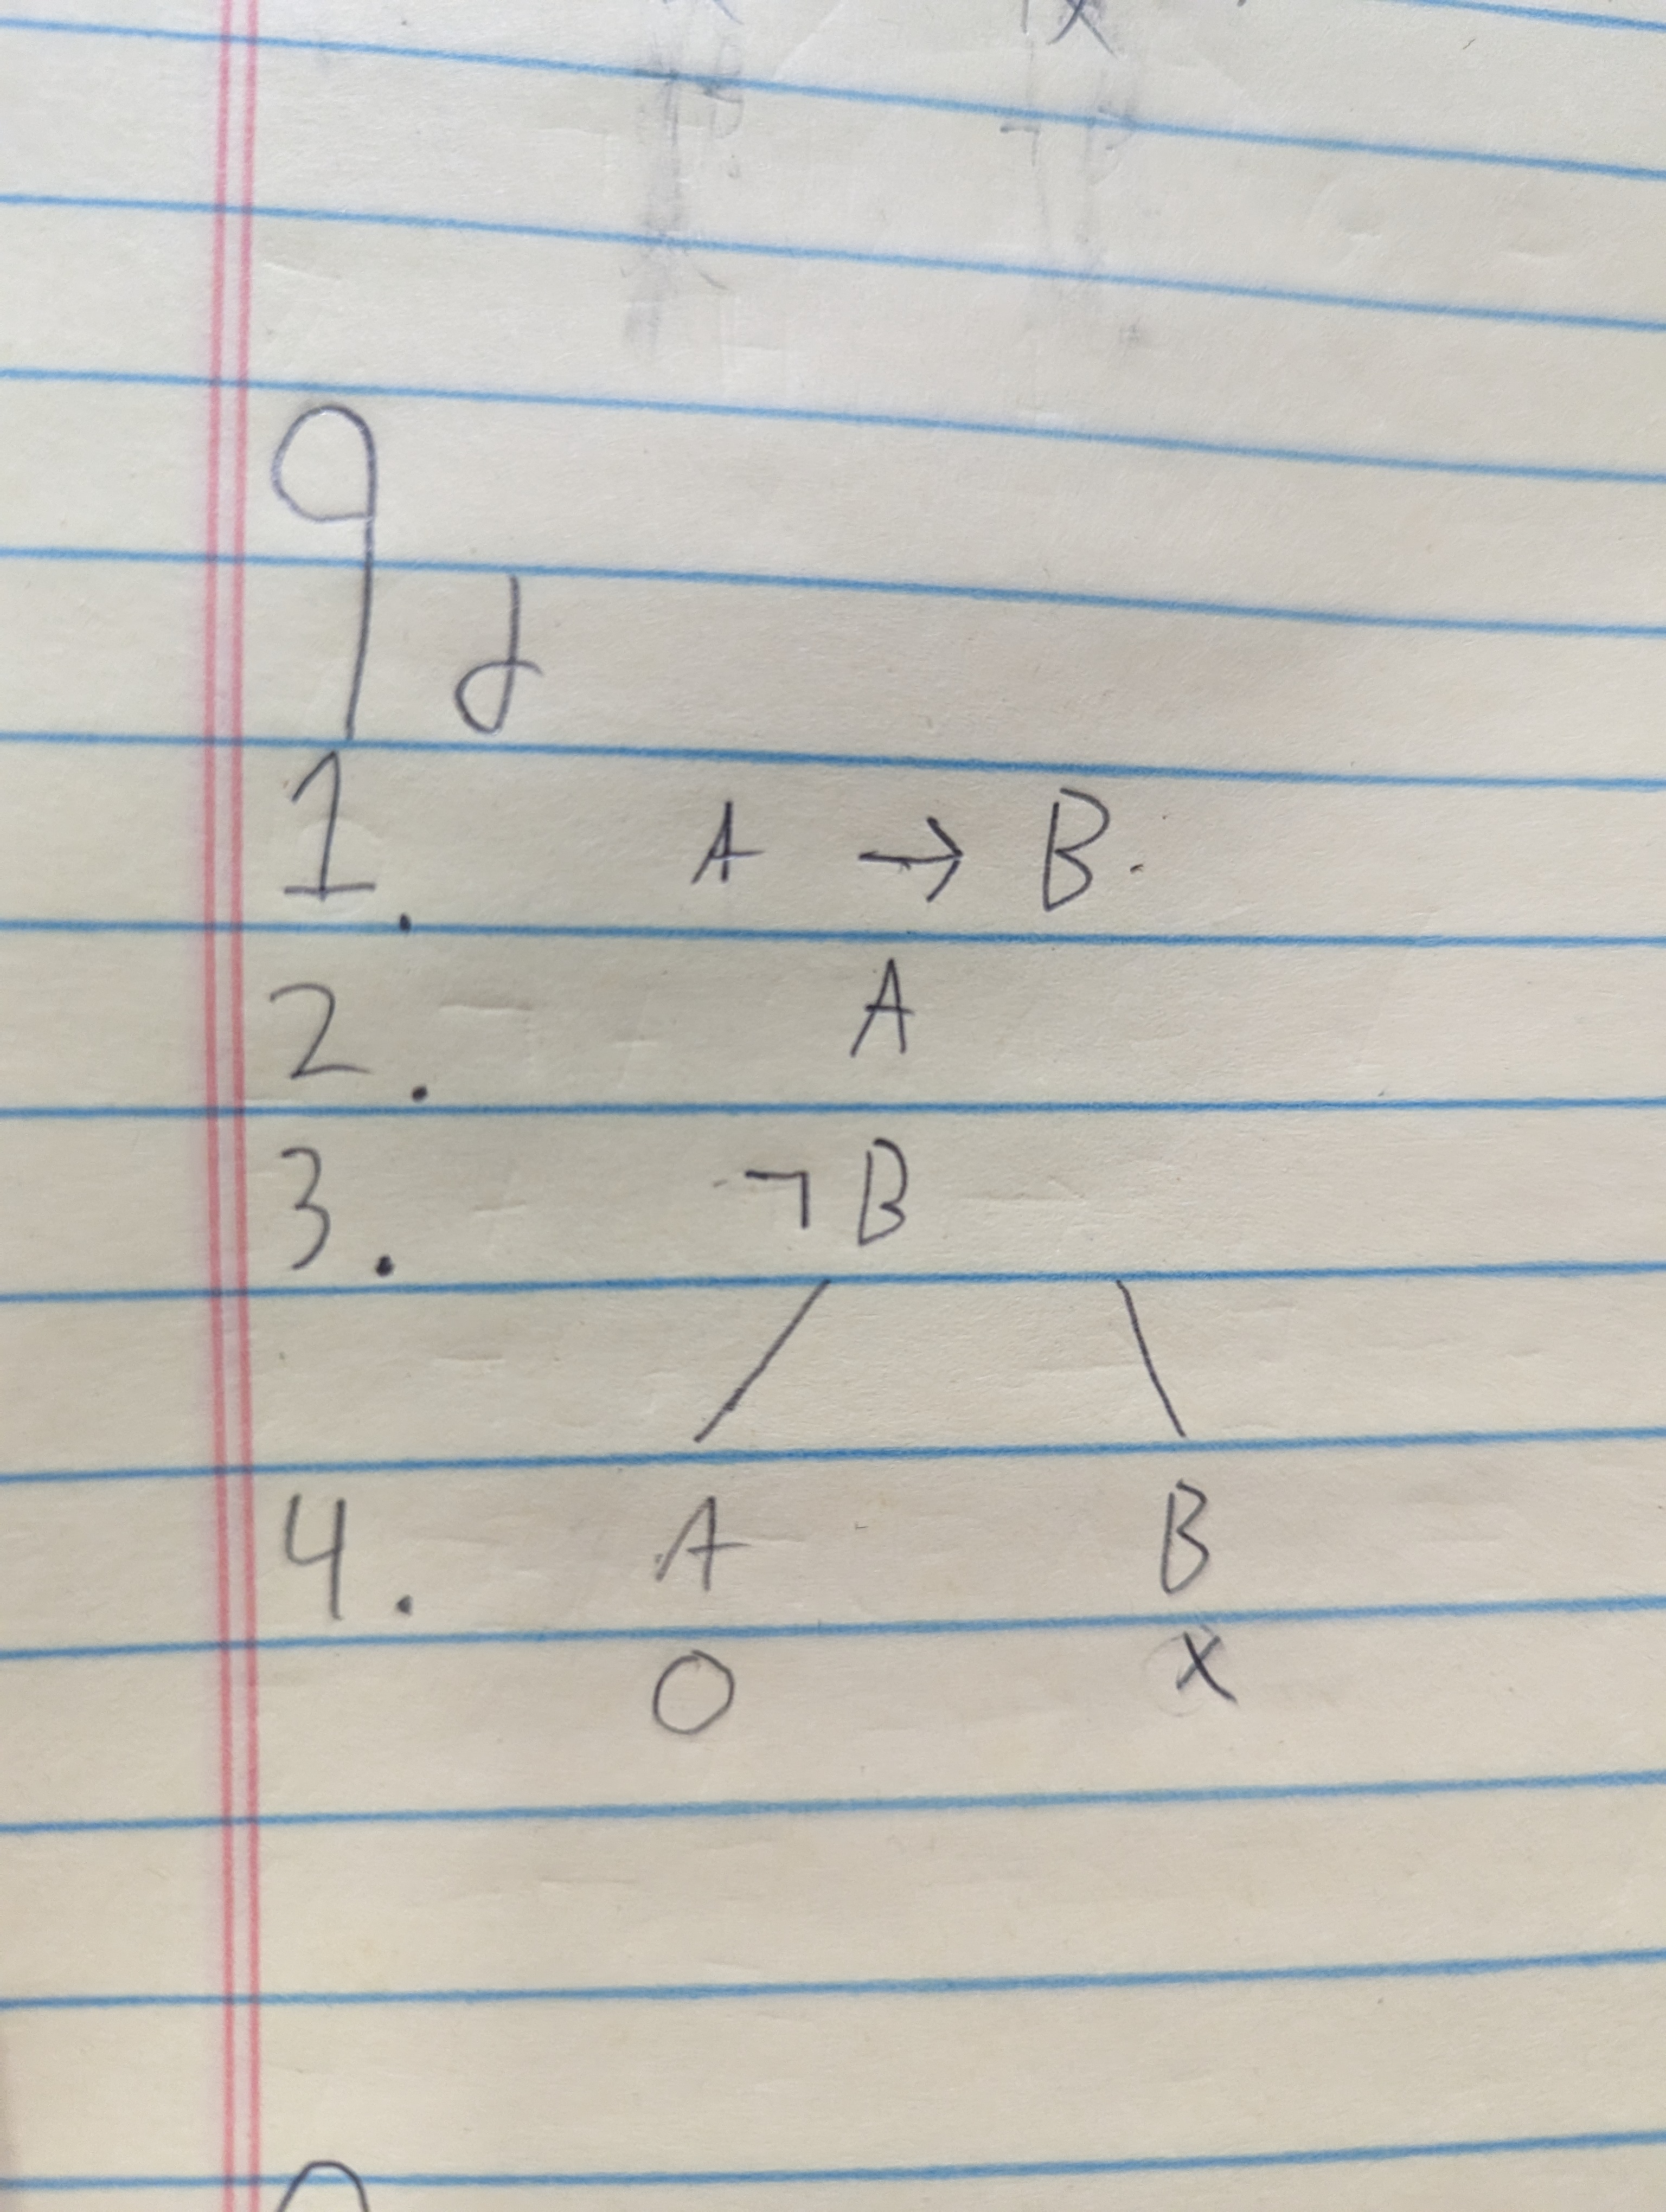 9d
1. A → B.
2. A
3. ¬B
4. A B
O X